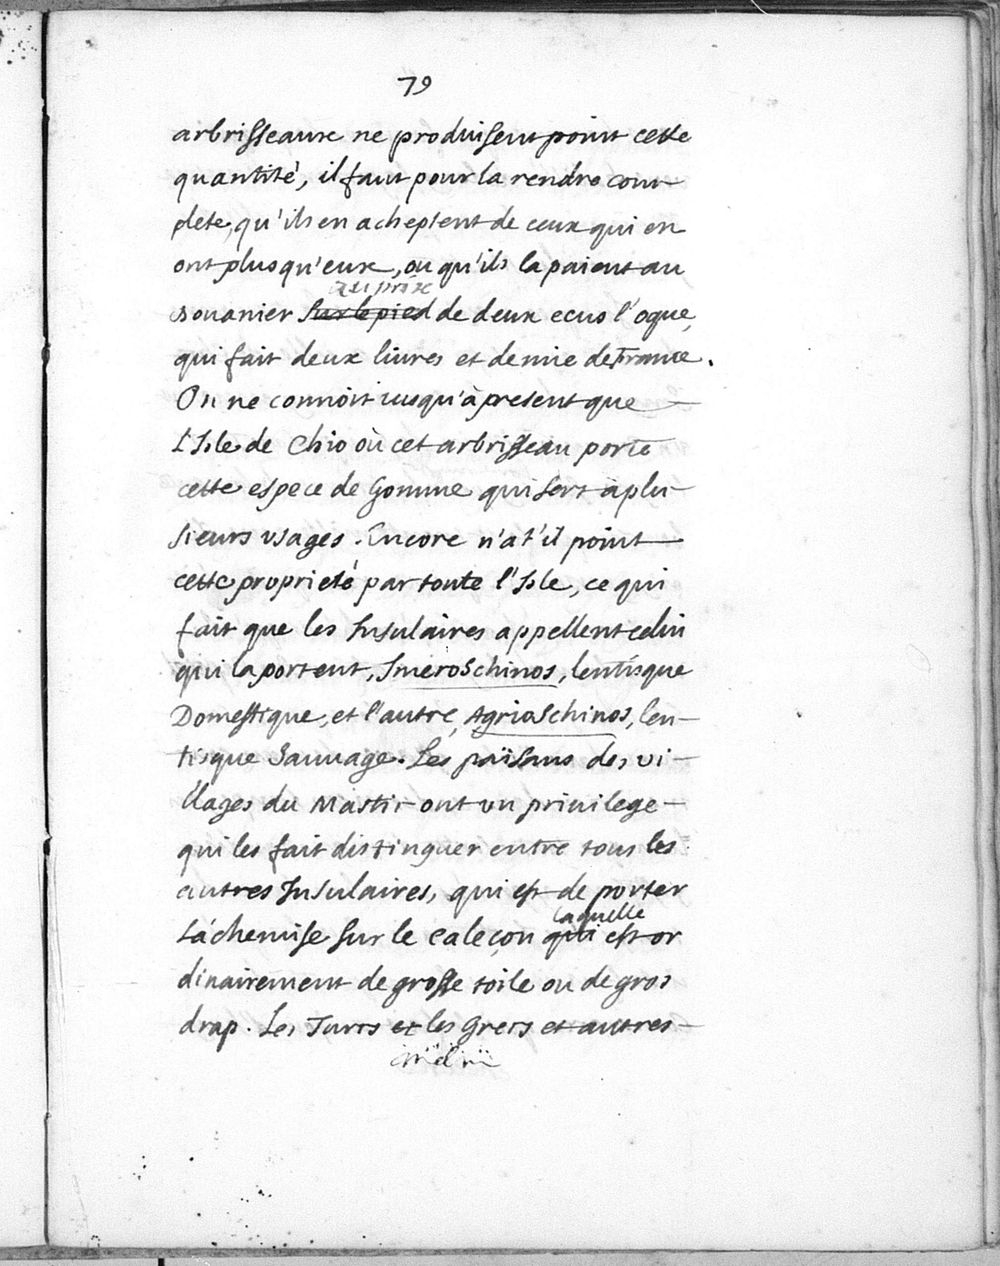 79
arbrisseaux ne produisent point cette
quantité, il faut pour la rendre com-
plete, qu'ils en acheptent de ceux qui en
ont plus qu'eux, ou qu'ils la paient au
au prix
Douanier sur le pied de deux ecus l'oque,
qui fait deux liures et demie de France.
On ne connoit iusqu'à present que
L'Isle de Chio où cet arbrisseau porte
cette espece de Gomme qui sert à plu-
sieurs vsages. Encore n'at'il point
cette proprieté par toute l'Isle, ce qui
fait que les Insulaires appellent celui
qui la portent, ImeroSchinos, lentisque
Domestique, et l'autre, AgrioSchinos, len-
tisque Sauuage. Les païsans des vi-
llages du Mastic ont vn priuilege
qui les fait distinguer entre tous les
autres Insulaires, qui est de porter
laquelle
La chemise sur le caleçon qui est or
dinairement de grosse toile ou de gros
drap. Les Turcs et les Grecs et autres